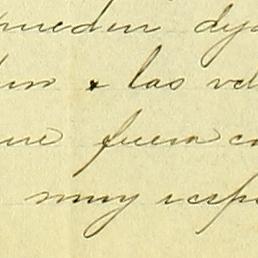 pueden dej
 las ve
que fuera co
muy resp